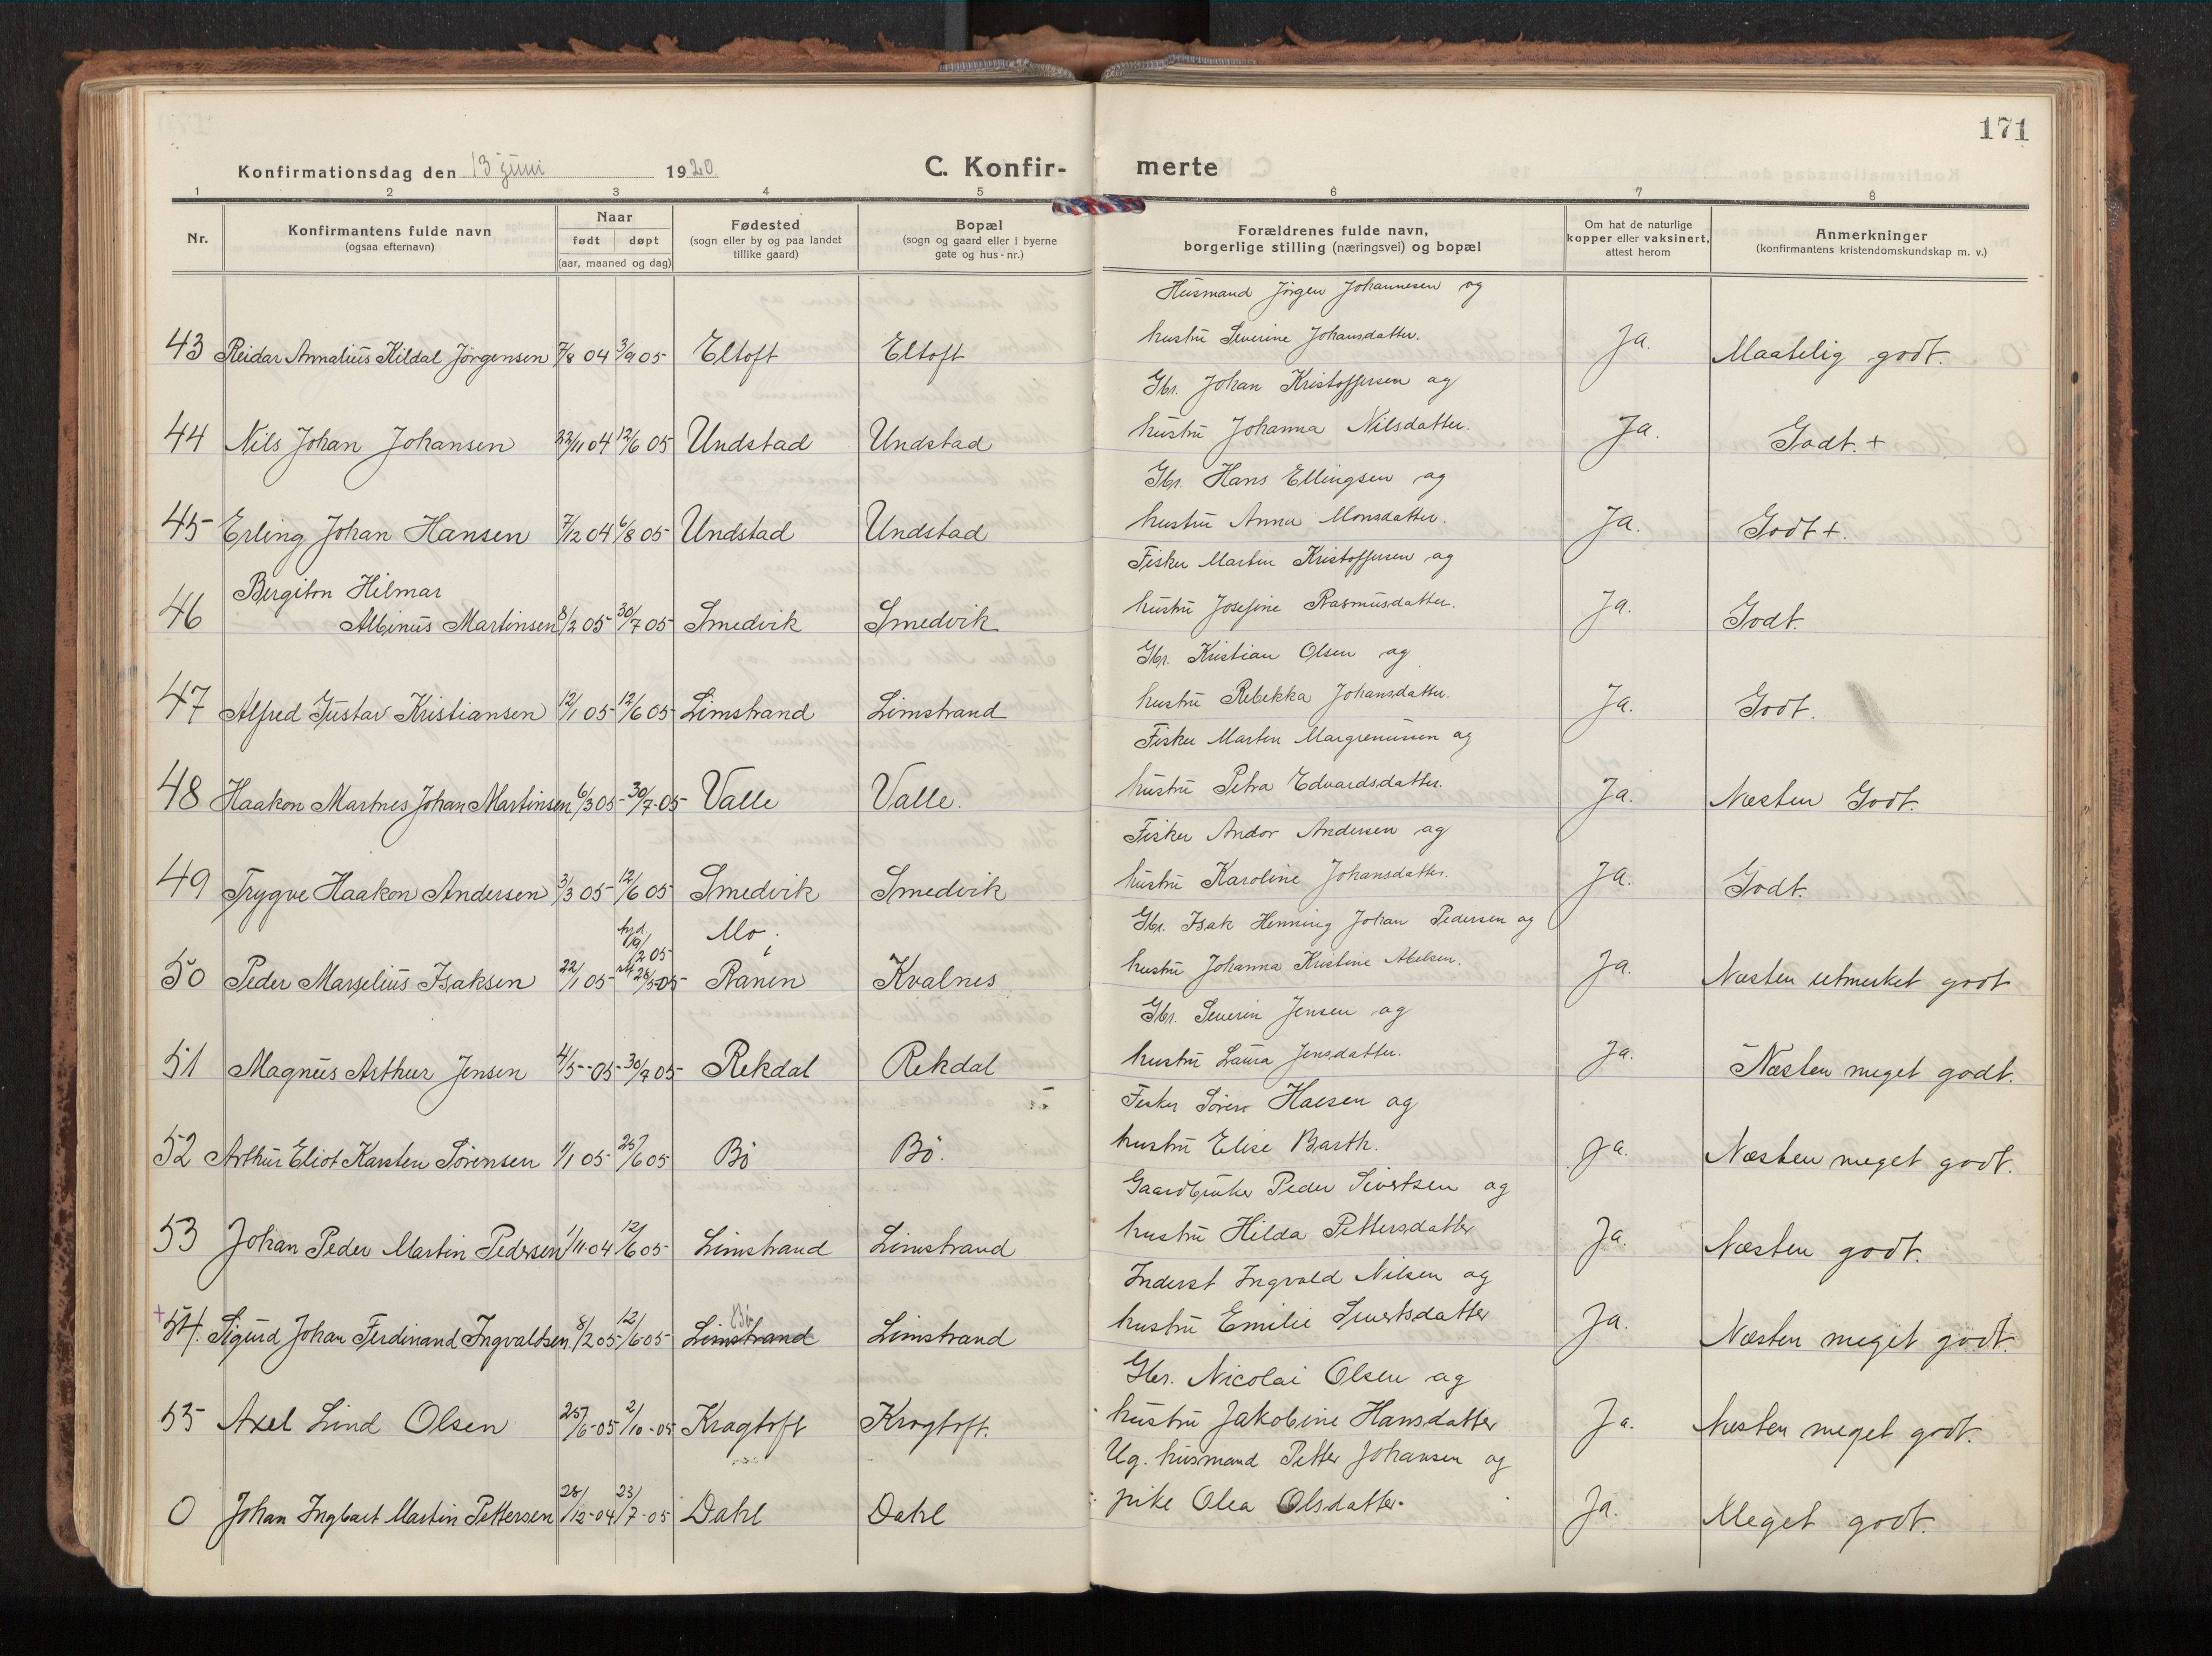 171
Konfirmationsdag den 13 juni 1920
C. Konfir-
merte
1 2 3 4 5 6 7 8
Nr.
Konfirmantens fulde navn
(ogsaa efternavn)
Naar
født døpt
(aar, maaned og dag)
Fødested
(sogn eller by og paa landet
tillike gaard)
Bopæl
(sogn og gaard eller i byerne
gate og hus-nr.)
Forældrenes fulde navn,
borgerlige stilling (næringsvei) og bopæl
Om hat de naturlige
kopper eller vaksinert,
attest herom
Anmerkninger
(konfirmantens kristendomskundskap m. v.)
Husmand Jørgen Johannesen og
hustru Severine Johansdatter.
43 Reidar Annalius Kildal Jørgensen 7/8 04 3/9 05 Eltoft Eltoft Ja. Maatelig godt.
Gbr. Johan Kristoffersen og
hustru Johanna Nilsdatter.
44 Nils Johan Johansen 22/11 04 12/6 05 Undstad Undstad Ja. Godt. +
Gbr. Hans Ellingsen og
hustru Anna Monsdatter.
45 Erling Johan Hansen 7/12 04 6/8 05 Undstad Undstad Ja. Godt +.
Fisker Martin Kristoffersen og
hustru Josefine Rasmusdatter.
Bergiton Hilmar
46 Albinus Martinsen 8/2 05 30/7 05 Smedvik Smedvik Ja. Godt.
Gbr. Kristian Olsen og
hustru Rebekka Johansdatter.
47 Alfred Gustav Kristiansen 12/1 05 12/6 05 Limstrand Limstrand Ja. Godt.
Fisker Martin og
hustru Petra Edvardsdatter.
48 Haakon Martnes Johan Martinsen 6/3 05 30/7-05 Valle Valle. Ja. Næsten Godt.
Fisker Andor Andersen og
hustru Karoline Johansdatter.
49 Trygve Haakon Andersen 3/3 05 12/6 05 Smedvik Smedvik Ja. Godt.
Gbr. Isak Henning Johan Pedersen og
hustru Johanna Kristine Abelsen.
hjd. 19/2 05 Mo i
50 Peder Marselius Isaksen 22/1 05 28/5-05 Ranen Kvalnes Ja. Næsten utmerket godt
Gbr. Severin Jensen og
hustru Laura Jensdatter.
51 Magnus Arthur Jensen 4/5-05 30/7 05 Rekdal Rekdal Ja. Næsten meget godt.
Fisker Søren Hansen og
hustru Elise Barth.
52 Arthur Eliot Karsten Sørensen 1/1 05 25/6 05 Bø Bø. Ja. Næsten meget godt.
Gaardbruker Peder Sivertsen og
hustru Hilda Pettersdatter
53 Johan Peder Martin Pedersen 1/11-04 12/6 05 Limstrand Limstrand Ja. Næsten godt.
Inderst Ingvald Nilsen og
hustru Emilie Sivertsdatter
Bø
+ 54. Sigurd Johan Ferdinand Ingvaldsen. 8/2 05 12/6-05 Limstrand Limstrand Ja. Næsten meget godt.
Gbr. Nicolai Olsen og
hustru Jakobine Hansdatter
55 Axel Lind Olsen 25/6-05 2/10-05 Kragtoft Kragtoft. Ja. Næsten meget godt.
Ug. husmand Petter Johansen og
pike Olea Olsdatter.
0 Johan Ingbart Martin Pettersen 28/12-04 23/7-05 Dahl Dahl Ja. Meget godt.